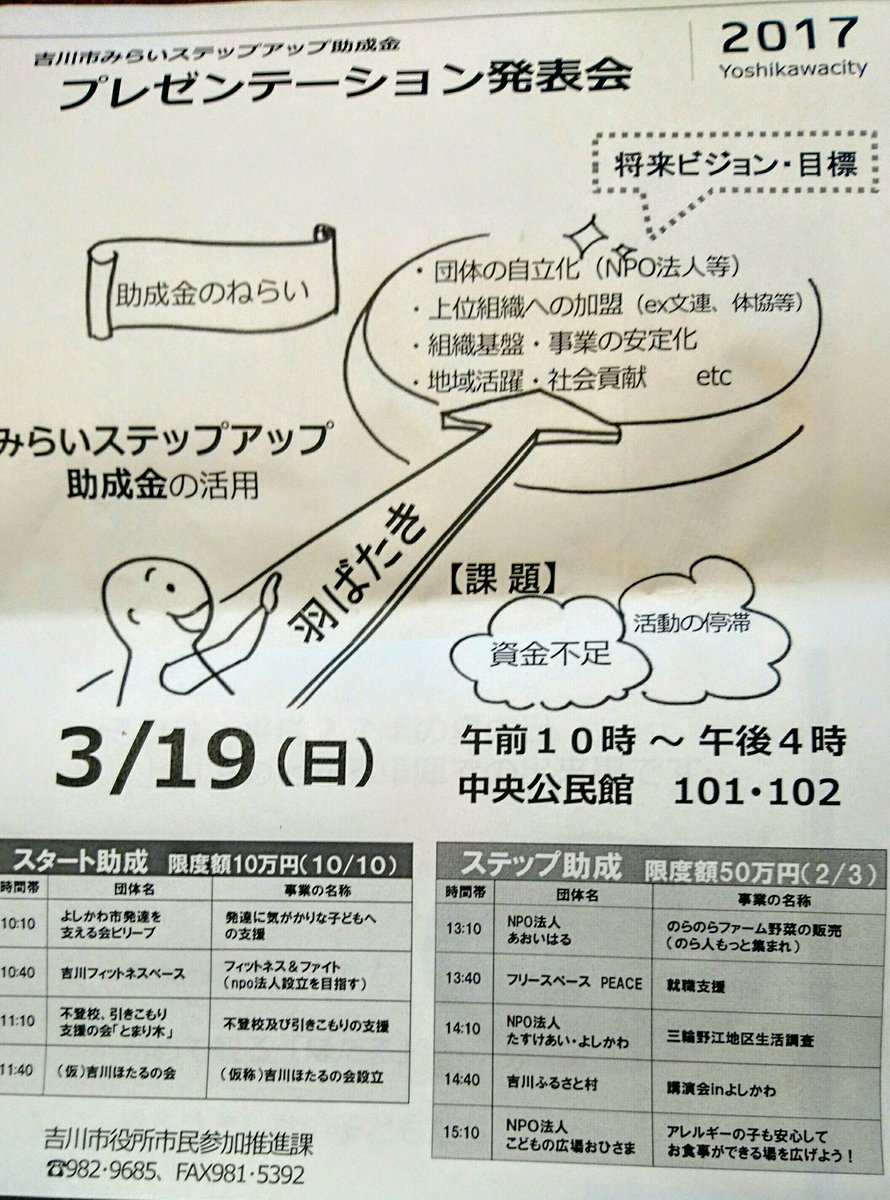 吉川市みらいステップアップ助成金
プレゼンテーション発表会
2017
Yoshikawacity
将来ビジョン・目標
助成金のねらい
・団体の自立化（NPO法人等）
・上位組織への加盟（ex文連、体協等）
・組織基盤・事業の安定化
・地域活躍・社会貢献 etc
みらいステップアップ
助成金の活用
羽ばたき
【課 題】
資金不足
活動の停滞
3/19（日）
午前１０時 ～ 午後４時
中央公民館 101・102
スタート助成 限度額10万円（10/10）
時間帯 団体名 事業の名称
10:10 よしかわ市発達を支える会ビリーブ 発達に気がかりな子どもへの支援
10:40 吉川フィットネスペース フィットネス＆ファイト（npo法人設立を目指す）
11:10 不登校、引きこもり支援の会「とまり木」 不登校及び引きこもりの支援
11:40 （仮）吉川ほたるの会 （仮称）吉川ほたるの会設立
ステップ助成 限度額50万円（2/3）
時間帯 団体名 事業の名称
13:10 NPO法人あおいはる のらのらファーム野菜の販売（のら人もっと集まれ）
13:40 フリースペース PEACE 就職支援
14:10 NPO法人たすけあい・よしかわ 三輪野江地区生活調査
14:40 吉川ふるさと村 講演会inよしかわ
15:10 NPO法人こどもの広場おひさま アレルギーの子も安心してお食事ができる場を広げよう！
吉川市役所市民参加推進課
☎982・9685、FAX981・5392